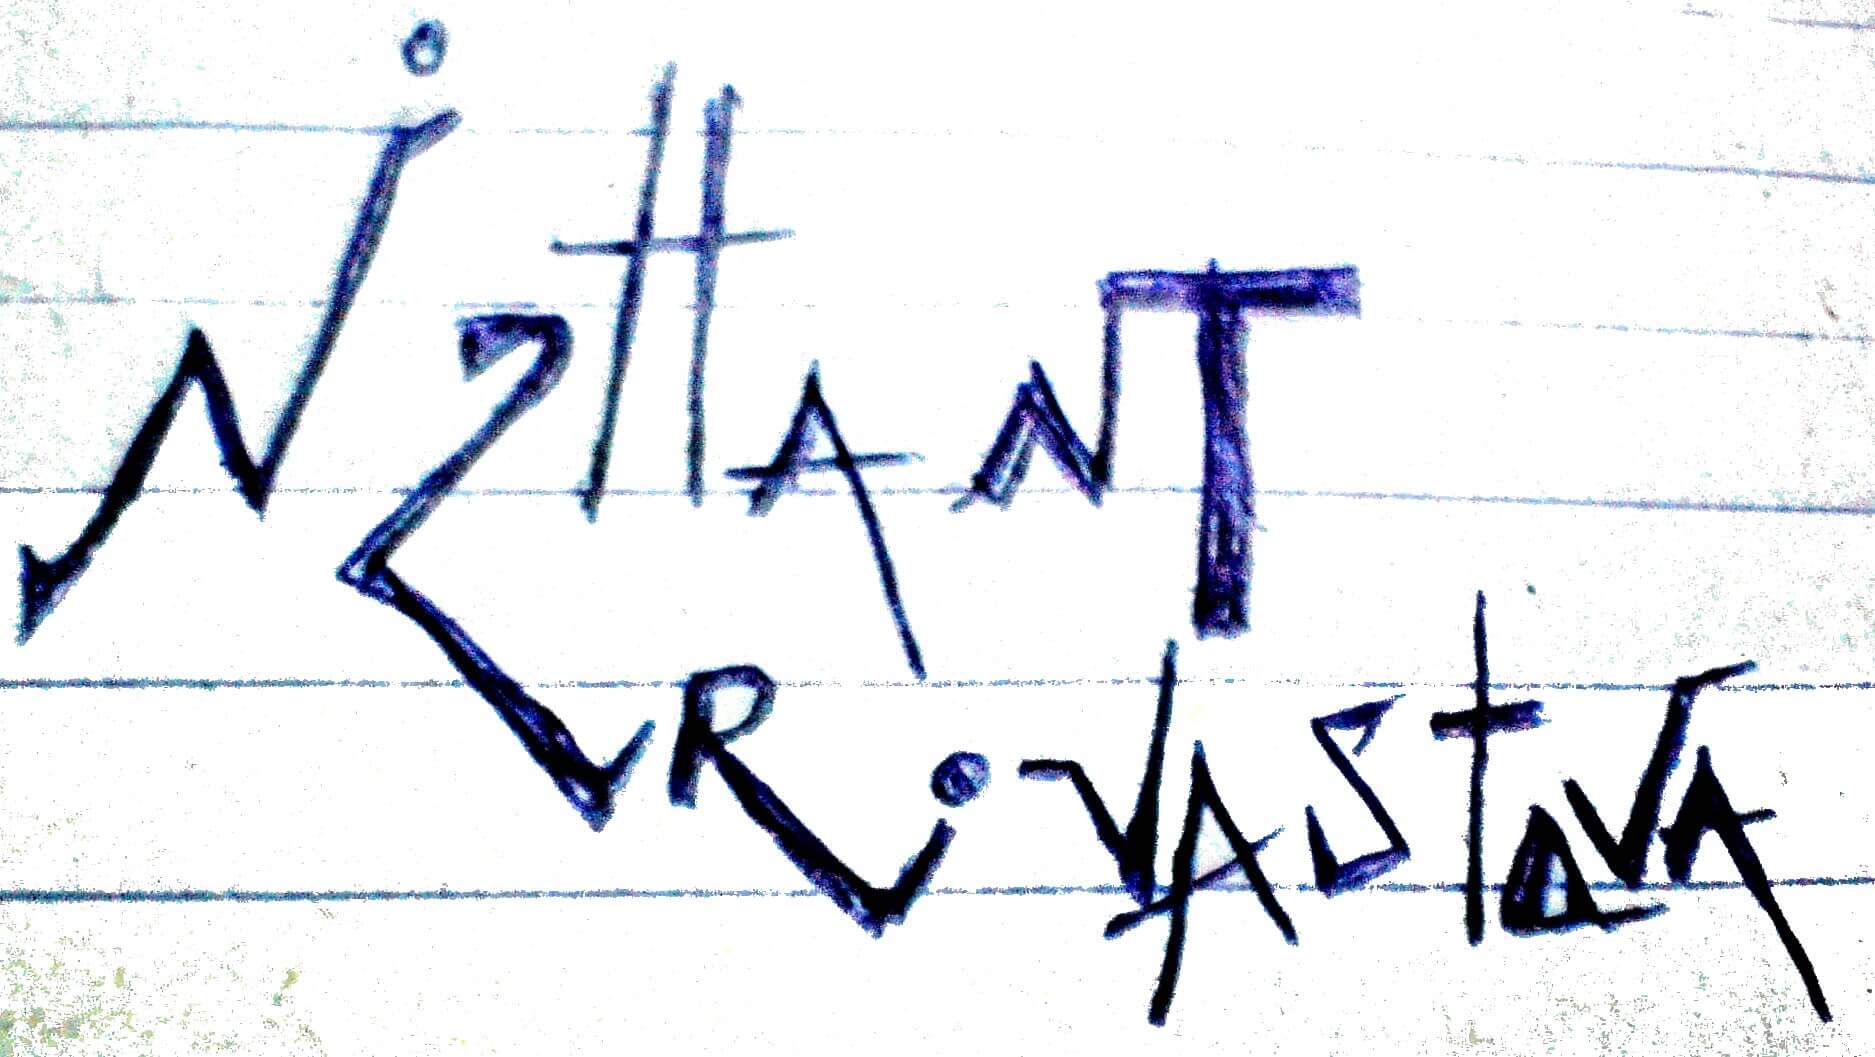 NiSHANT
SRiVAStAVA